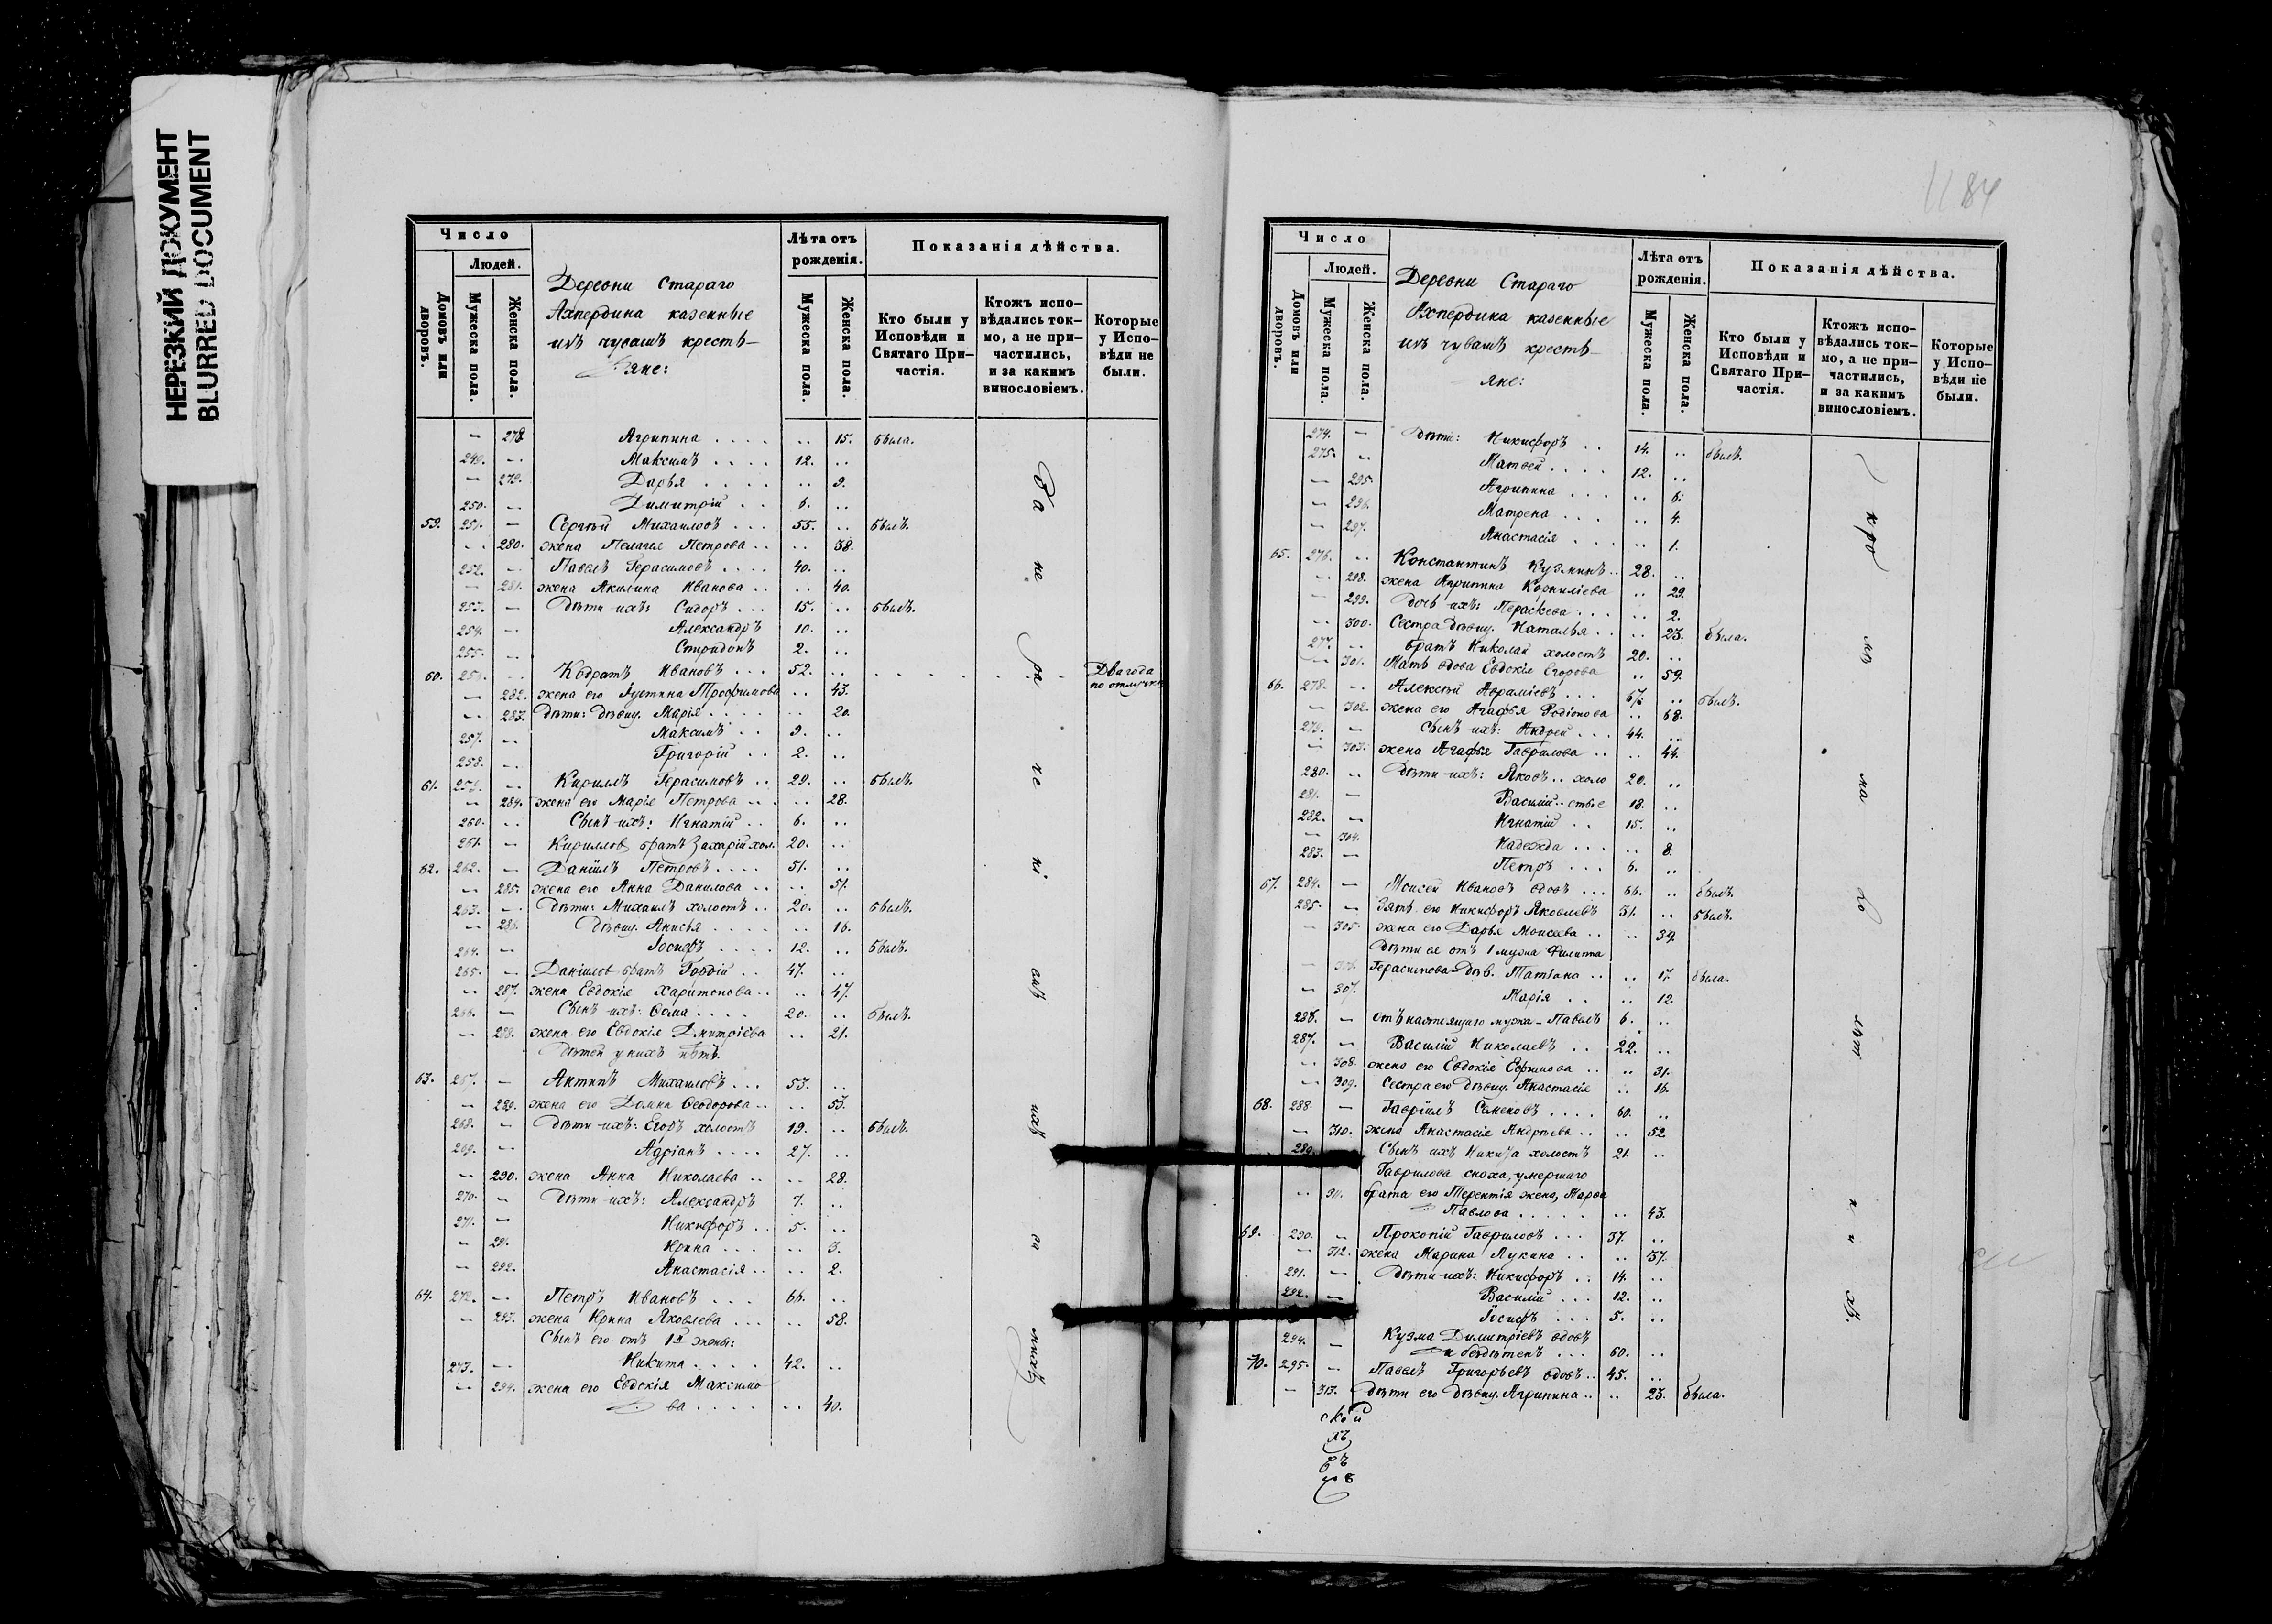 НЕРЕЗКИЙ ДОКУМЕНТ
BLURRED DOCUMENT
Число
Людей.
Домовъ или дворовъ.
Мужеска пола.
Женска пола.
Деревни Стараго
Ахпердина казенные
изъ чувашъ кресть-
яне:
Лѣта отъ рожденія.
Мужеска пола.
Женска пола.
Показанія дѣйства.
Кто были у Исповѣди и Святаго Причастія.
Ктожъ исповѣдались токмо, а не причастились, и за какимъ винословіемъ.
Которые у Исповѣди не были.
— 278. Агрипина . . . . .. 15. была.
249. — Максимъ . . . . 12. ..
— 279. Дарья . . . . .. 9.
250. — Димитрій . . 6. ..
59. 251. — Сергѣй Михаиловъ . . . 55. .. былъ.
.. 280. жена Пелагея Петрова . . .. 38.
252. — Павелъ Герасимовъ . . . . 40. ..
— 281. жена Акилина Иванова . . .. 40.
253. — Дѣти ихъ: Сидоръ . . . 15. .. былъ.
254. — Александръ 10. ..
255. .. Спиридонъ 2. ..
60. 256. .. Кодратъ Ивановъ . . . 52. .. Два года по отлучке
— 282. жена его Трофимова .. 43.
.. 283. Дѣти: дѣвиц. Марія . . . . .. 20.
257. .. Максимъ . . 9. ..
258. .. Григорій . . 2. ..
61. 259. .. Кириллъ Герасимовъ . . 29. .. былъ.
.. 284. жена его Марія Петрова . . . .. 28.
260. .. Сынъ ихъ: Игнатій . . 6. ..
261. — Кириллов братъ Захарій хол. 20. ..
62. 262. — Даніилъ Петровъ . . . . 51. ..
.. 285. жена его Анна Данилова . . .. 51.
263. — Дѣти: Михаилъ холостъ . . 20. .. былъ.
— 286. Дѣвиц. Анисья . . . . .. 16.
264. — Іосифъ . . . . 12. .. былъ.
265. — Даніилов братъ Гордій . . 47. ..
.. 287. жена Евдокія Харитонова . . .. 47.
266. — Сынъ ихъ: Ѳома . . . . 20. .. былъ.
.. 288. жена его Евдокія Дмитріева .. 21.
Дѣтей у нихъ нѣтъ.
63. 267. — Антипъ Михаиловъ . . . 53. ..
.. 289. жена его Домна Ѳеодорова . . .. 53.
268. — Дѣти ихъ: Егоръ холостъ 19. .. былъ.
269. — Адріанъ . . . . 27. ..
.. 290. жена Анна Николаева . . .. 28.
270. .. Дѣти ихъ: Александръ 7. ..
271. — Никифоръ . . 5. ..
.. 291. Ирина . . . .. 3.
— 292. Анастасія . . .. 2.
64. 272. .. Петръ Ивановъ . . . 66. ..
.. 293. жена Ирина Яковлева . . . .. 58.
Сынъ его отъ 1й жены:
273. — Никита . . . . 42. ..
.. 294. жена его Евдокія Максимо-
ва . . . . .. 40.
1184
Число
Людей.
Домовъ или дворовъ.
Мужеска пола.
Женска пола.
Деревни Стараго
Ахпердина казенные
изъ чувашъ кресть-
яне:
Лѣта отъ рожденія.
Мужеска пола.
Женска пола.
Показанія дѣйства.
Кто были у Исповѣди и Святаго Причастія.
Ктожъ исповѣдались токмо, а не причастились, и за какимъ винословіемъ.
Которые у Исповѣди не были.
274. — Дѣти: Никифоръ . . 14. .. былъ.
275. .. Матвей . . . . 12. ..
— 295. Агрипина . . . .. 6.
— 296. Матрена . . . .. 4.
— 297. Анастасія . . . .. 1.
65. 276. .. Константинъ Кузминъ . . 28. ..
— 298. жена Агрипина Корниліева .. 29.
— 299. Дочь ихъ: Пераскева . . . .. 2.
.. 300. Сестра дѣвиц. Наталья . . .. 23. была.
277. .. братъ Николай холостъ 20. ..
.. 301. Мать вдова Евдокія Егорова .. 59.
66. 278. .. Алексѣй Авраміевъ . . . 67. .. былъ.
— 302. жена его Агафья Родіонова .. 68.
279. — Сынъ ихъ: Андрей . . . 44. ..
— 303. жена Агафья Гаврилова . . .. 44.
280. .. Дѣти ихъ: Яковъ . . холо 20. ..
281. — Василій . . стые 18. ..
282. — Игнатій . . 15. ..
— 304. Надежда . . . .. 8.
283. — Петръ . . . 6. ..
67. 284. — Моисей Ивановъ вдовъ . . . 66. .. былъ.
285. — Зять его Никифоръ Яковлевъ 31. .. былъ.
— 305. жена его Дарья Моисеева . . .. 39.
Дѣти ея отъ 1 мужа Филипа
— 306. Герасимова - дѣв. Татіана . . .. 17. была.
— 307. Марія . . .. 12.
286. — отъ настоящаго мужа - Павелъ 6. ..
287. — Василій Николаевъ . . 22. ..
.. 308. жена его Евдокія Ефимова . . .. 31.
.. 309. Сестра его дѣвиц. Анастасія .. 16.
68. 288. — Гавріилъ Семеновъ . . . . 60. ..
— 310. жена Анастасія Андреева . . .. 52.
289. Сынъ ихъ Никита холостъ 21. ..
Гаврилова сноха, умершаго
.. 311. брата его Терентія жена, Марѳа
Павлова . . . . .. 43.
69. 290. — Прокопій Гавриловъ . . . 37. ..
— 312. жена Марина Лукина . . .. 37.
291. — Дѣти ихъ: Никифоръ . . 14. ..
292. — Василій . . . 12. ..
Іосифъ . . . 5. ..
294. — Кузма Димитріевъ вдовъ
и бездѣтенъ . . . 60. ..
70. 295. — Павелъ Григорьевъ вдовъ . . 45. ..
— 313. Дѣти его дѣвиц. Агрипина . . .. 23. была.